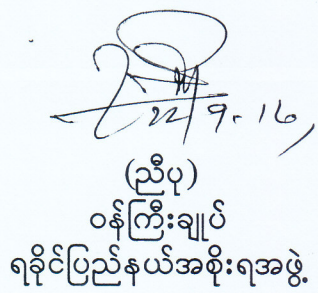 22/9-16
(ညီပု)
ဝန်ကြီးချုပ်
ရခိုင်ပြည်နယ်အစိုးရအဖွဲ့